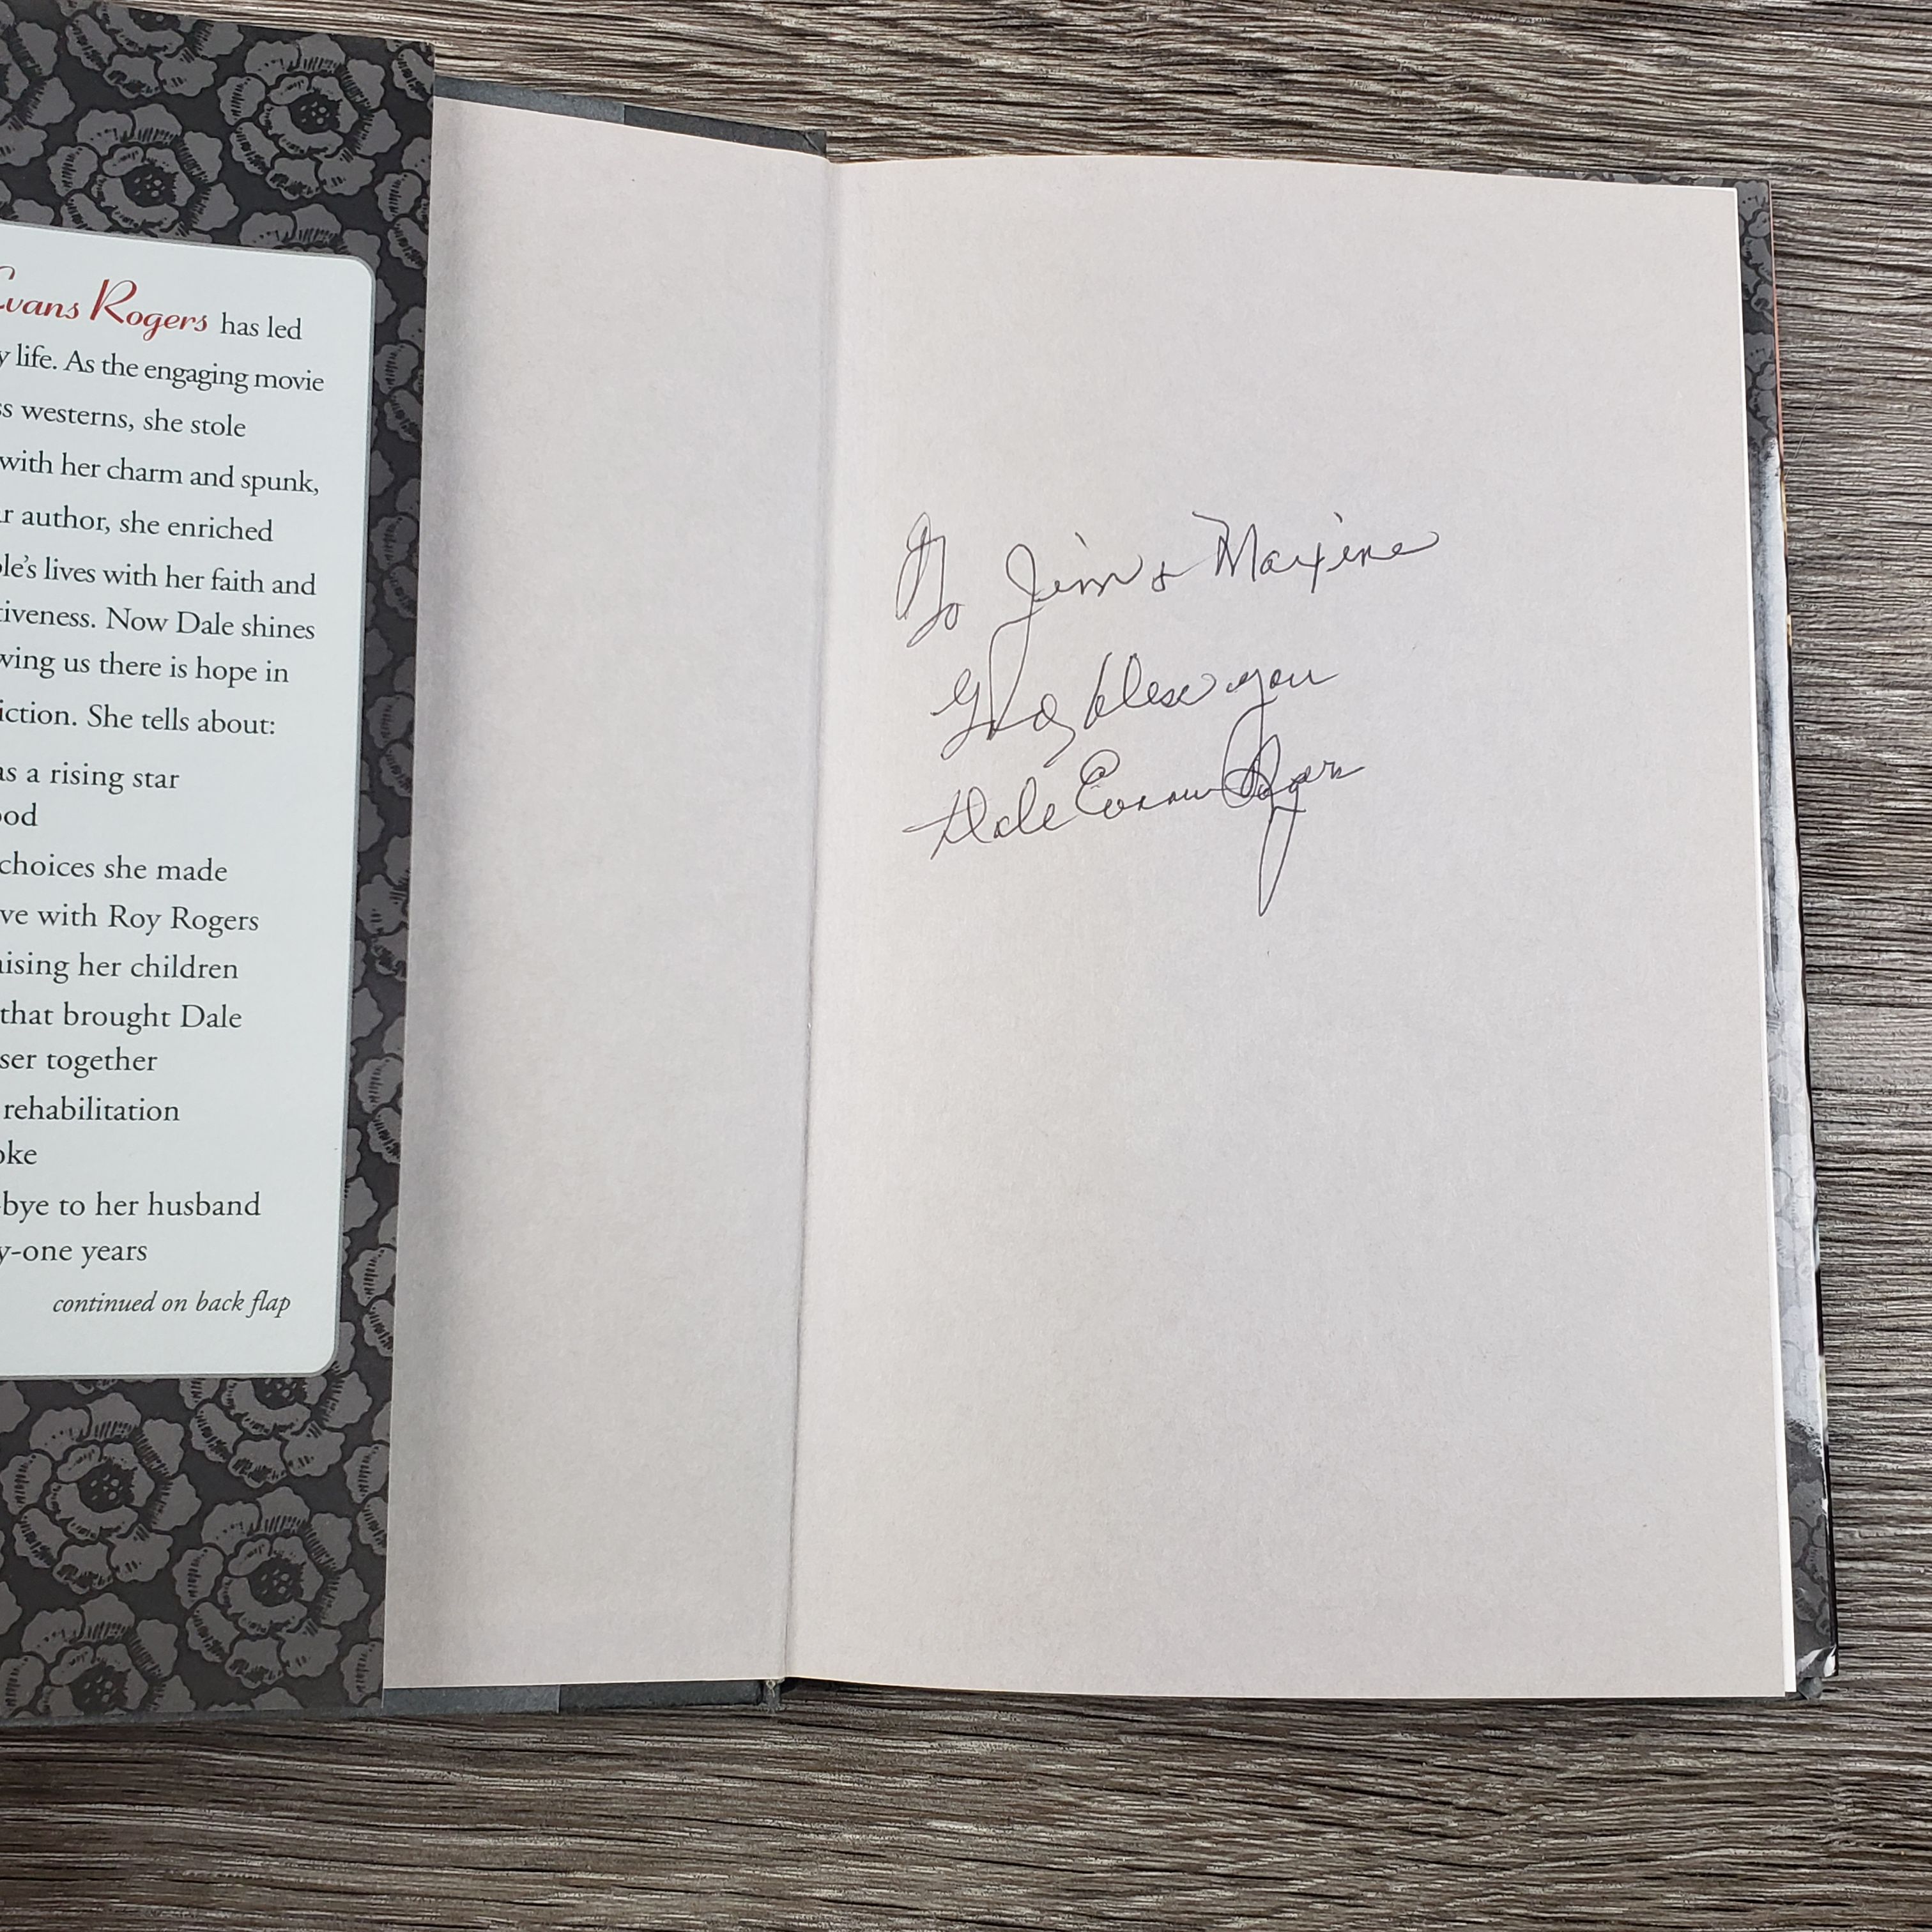 Evans Rogers has led
life. As the engaging movie
westerns, she stole
with her charm and spunk,
author, she enriched
lives with her faith and
Now Dale shines
us there is hope in
She tells about:
as a rising star
choices she made
with Roy Rogers
her children
that brought Dale
together
rehabilitation
bye to her husband
y-one years
continued on back flap
To Jim & Maxine
God bless you
Dale Evans Rogers